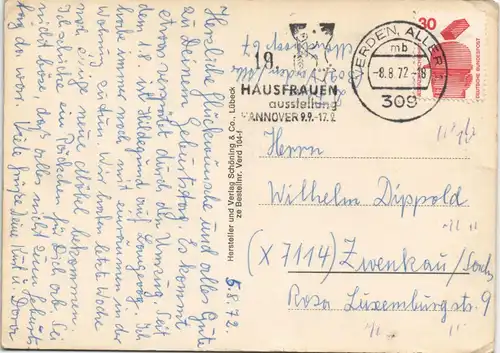 Herzliche Glückwünsche und alles Gute
zu Deinem Geburtstag. Es kommt
etwas verspätet durch den Umzug. Seit
den 18. ist Hildegund auf Langeoog. Ich
habe immer noch mit einräumen in der
Wohnung zu tun. Wir haben letzte Woche
noch einige neue Möbel bekommen.
Ich schicke ein Päckchen für Dich ab. Sei
nicht böse, daß alles nicht zum Geburts-
tag da war. Viele Grüße Deine Kurt u. Dora
5.8.72
Hersteller und Verlag Schöning & Co., Lübeck
ze Bestellnr. Verd 104-f
19.
HAUSFRAUEN
ausstellung
HANNOVER 9.9.-17.9.
VERDEN, ALLER 1
mb
-8.8.72-18
309
30
DEUTSCHE BUNDESPOST
Herrn
Wilhelm Dippold
(X 7114) Zwenkau/Sachs
Rosa Luxemburgstr. 9